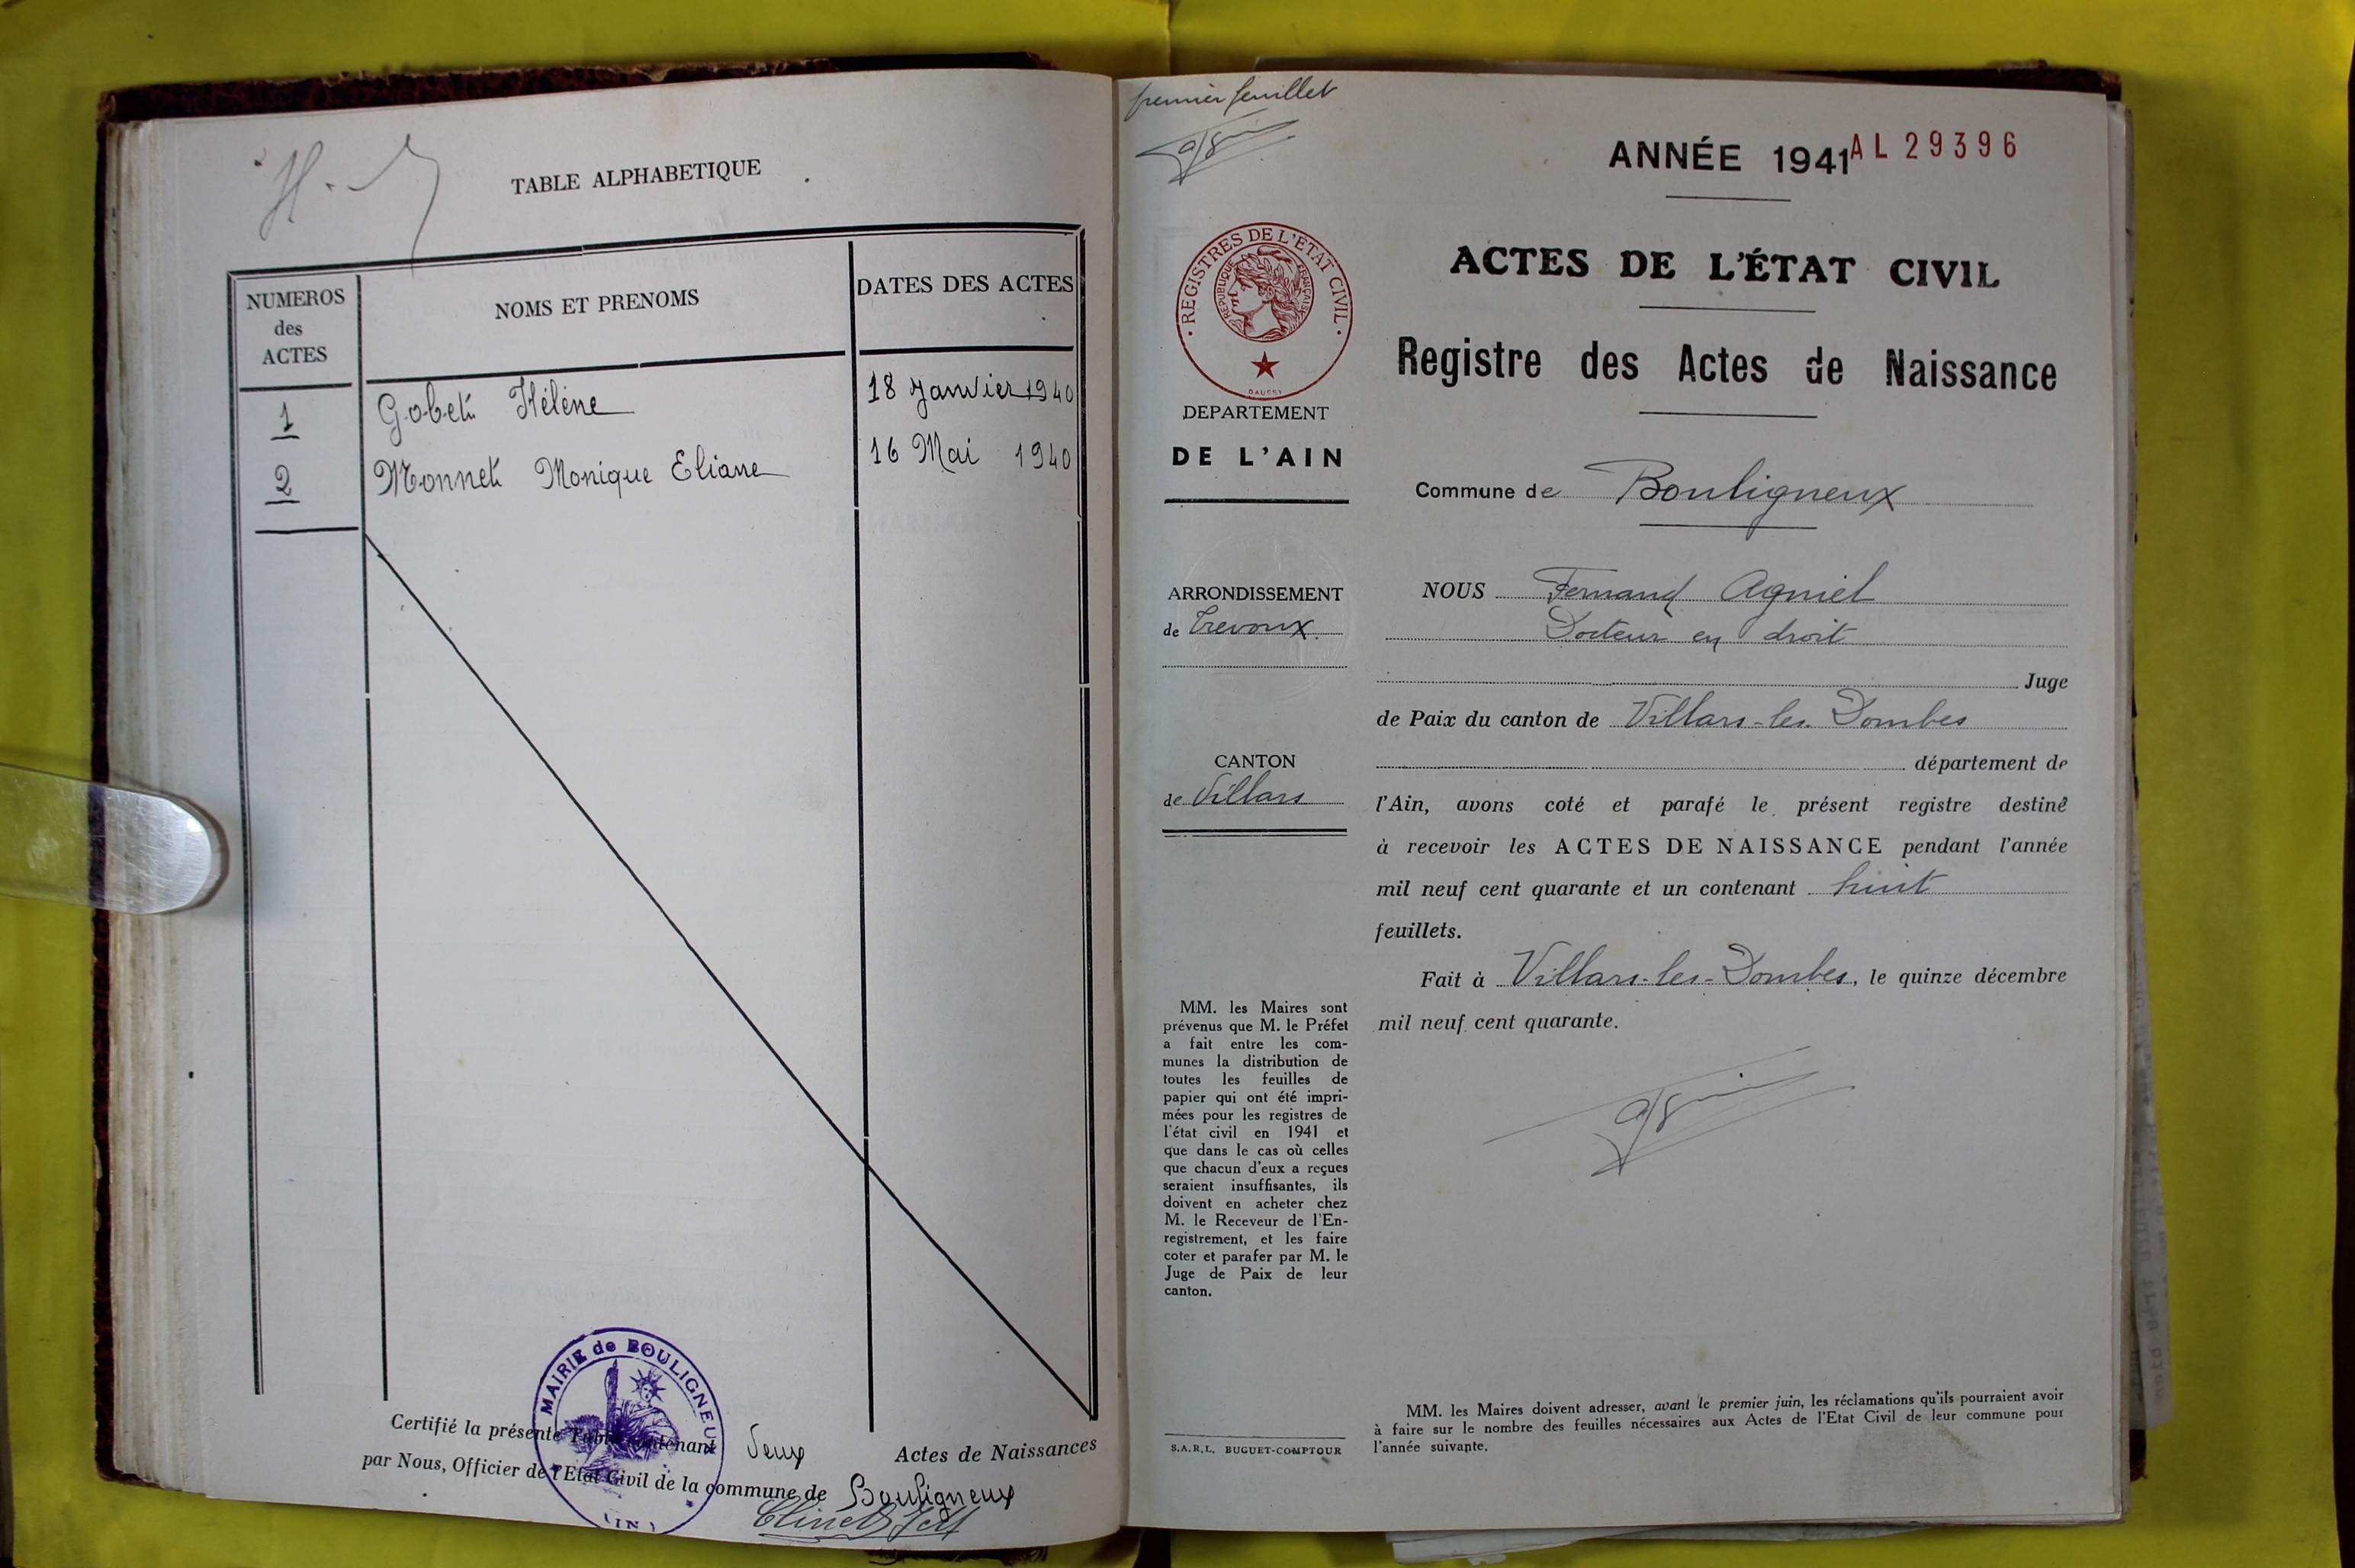 TABLE ALPHABETIQUE
NUMEROS
des
ACTES
NOMS ET PRENOMS
DATES DES ACTES
1 Gobet Hélène 18 Janvier 1940
2 Monnet Monique Eliane 16 Mai 1940
MAIRIE de BOULIGNEUX
Certifié la présente Table contenant Deux Actes de Naissances
par Nous, Officier de l'Etat Civil de la commune de Bouligneux
premier feuillet
ANNÉE 1941
AL 29396
REGISTRES DE L'ÉTAT CIVIL
REPUBLIQUE FRANÇAISE
DEPARTEMENT
DE L'AIN
ARRONDISSEMENT
de Trévoux
CANTON
de Villars
MM. les Maires sont
prévenus que M. le Préfet
a fait entre les com-
munes la distribution de
toutes les feuilles de
papier qui ont été impri-
mées pour les registres de
l'état civil en 1941 et
que dans le cas où celles
que chacun d'eux a reçues
seraient insuffisantes, ils
doivent en acheter chez
M. le Receveur de l'En-
registrement, et les faire
coter et parafer par M. le
Juge de Paix de leur
canton.
S.A.R.L. BUGUET-COMPTOUR
ACTES DE L'ÉTAT CIVIL
Registre des Actes de Naissance
Commune de Bouligneux
NOUS Fernand Agniel
Docteur en droit
Juge
de Paix du canton de Villars-les Dombes
département de
l'Ain, avons coté et parafé le présent registre destiné
à recevoir les ACTES DE NAISSANCE pendant l'année
mil neuf cent quarante et un contenant huit
feuillets.
Fait à Villars-les-Dombes, le quinze décembre
mil neuf cent quarante.
MM. les Maires doivent adresser, avant le premier juin, les réclamations qu'ils pourraient avoir
à faire sur le nombre des feuilles nécessaires aux Actes de l'Etat Civil de leur commune pour
l'année suivante.